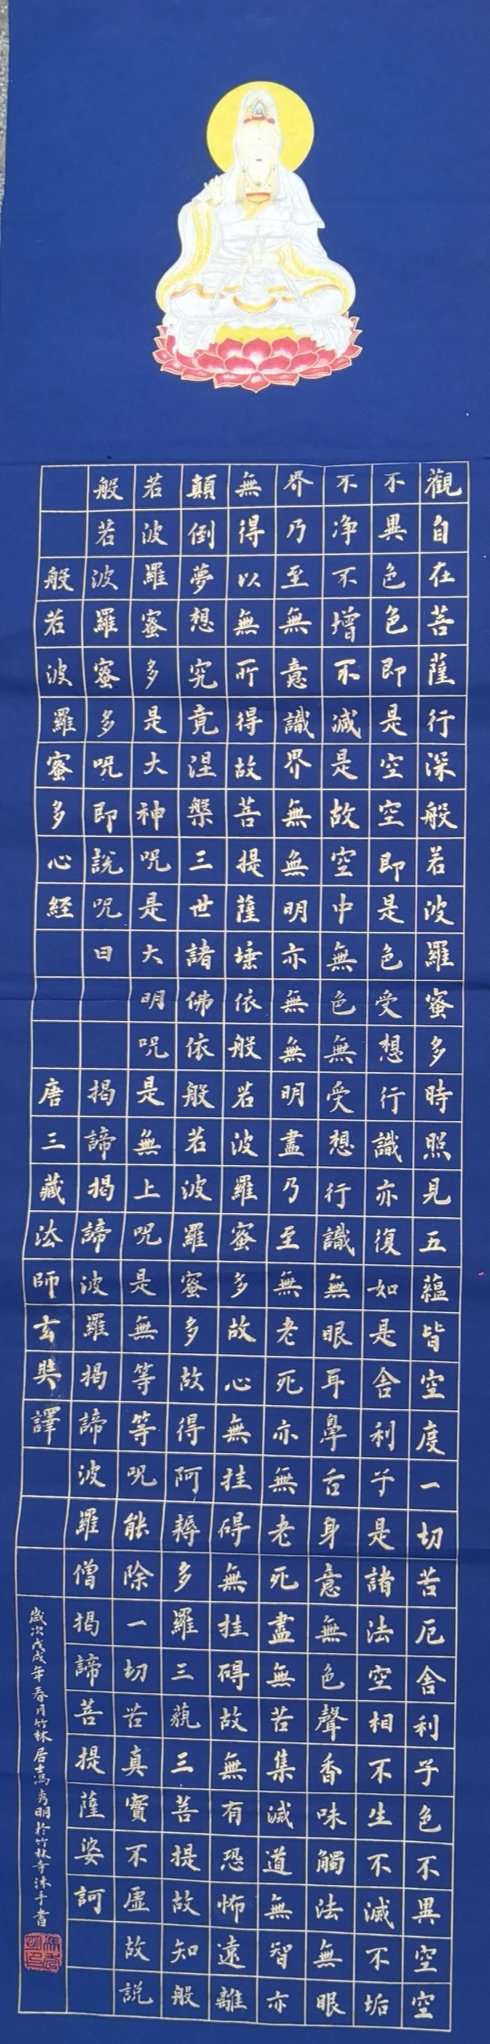 觀自在菩薩行深般若波羅蜜多時照見五蘊皆空度一切苦厄舍利子色不異空空
不異色色即是空空即是色受想行識亦復如是舍利子是諸法空相不生不滅不垢
不净不增不減是故空中無色無受想行識無眼耳鼻舌身意無色聲香味觸法無眼
界乃至無意識界無無明亦無無明盡乃至無老死亦無老死盡無苦集滅道無智亦
無得以無所得故菩提薩埵依般若波羅蜜多故心無挂碍無挂碍故無有恐怖遠離
顛倒夢想究竟涅槃三世諸佛依般若波羅蜜多故得阿耨多羅三藐三菩提故知般
若波羅蜜多是大神咒是大明咒是無上咒是無等等咒能除一切苦真實不虛故說
般若波羅蜜多咒即說咒曰 揭諦揭諦波羅揭諦波羅僧揭諦菩提薩婆訶
般若波羅蜜多心経 唐三藏法師玄奘譯
歲次戊戌年春月竹林居士馮秀明於竹林寺沐手書